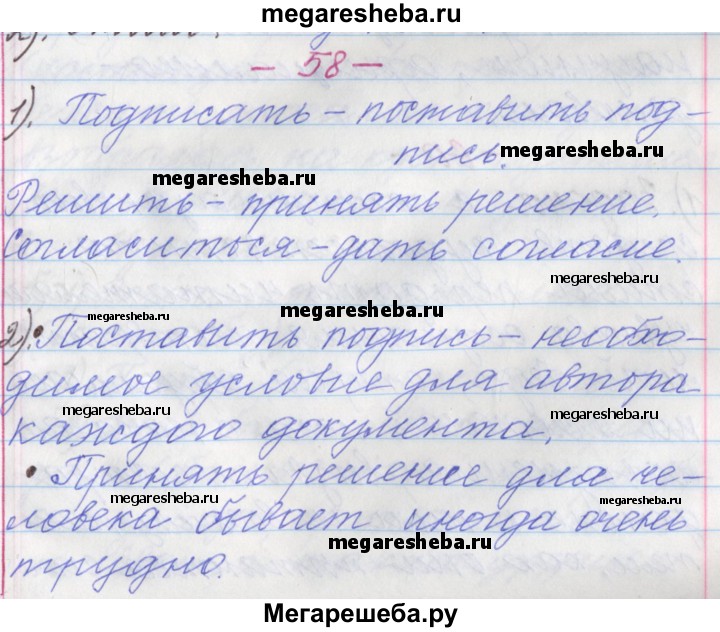 megaresheba.ru
2).
- 58 -
1). Подписать - поставить под-
пись.
megaresheba.ru
megaresheba.ru
Решить - принять решение.
Согласиться - дать согласие.
megaresheba.ru
megaresheba.ru
megaresheba.ru
2). • Поставить подпись - необхо-
димое условие для автора
megaresheba.ru
megaresheba.ru
каждого документа.
• Принять решение для че-
megaresheba.ru
megaresheba.ru
ловека бывает иногда очень
megaresheba.ru
трудно.
Мегарешеба.ру